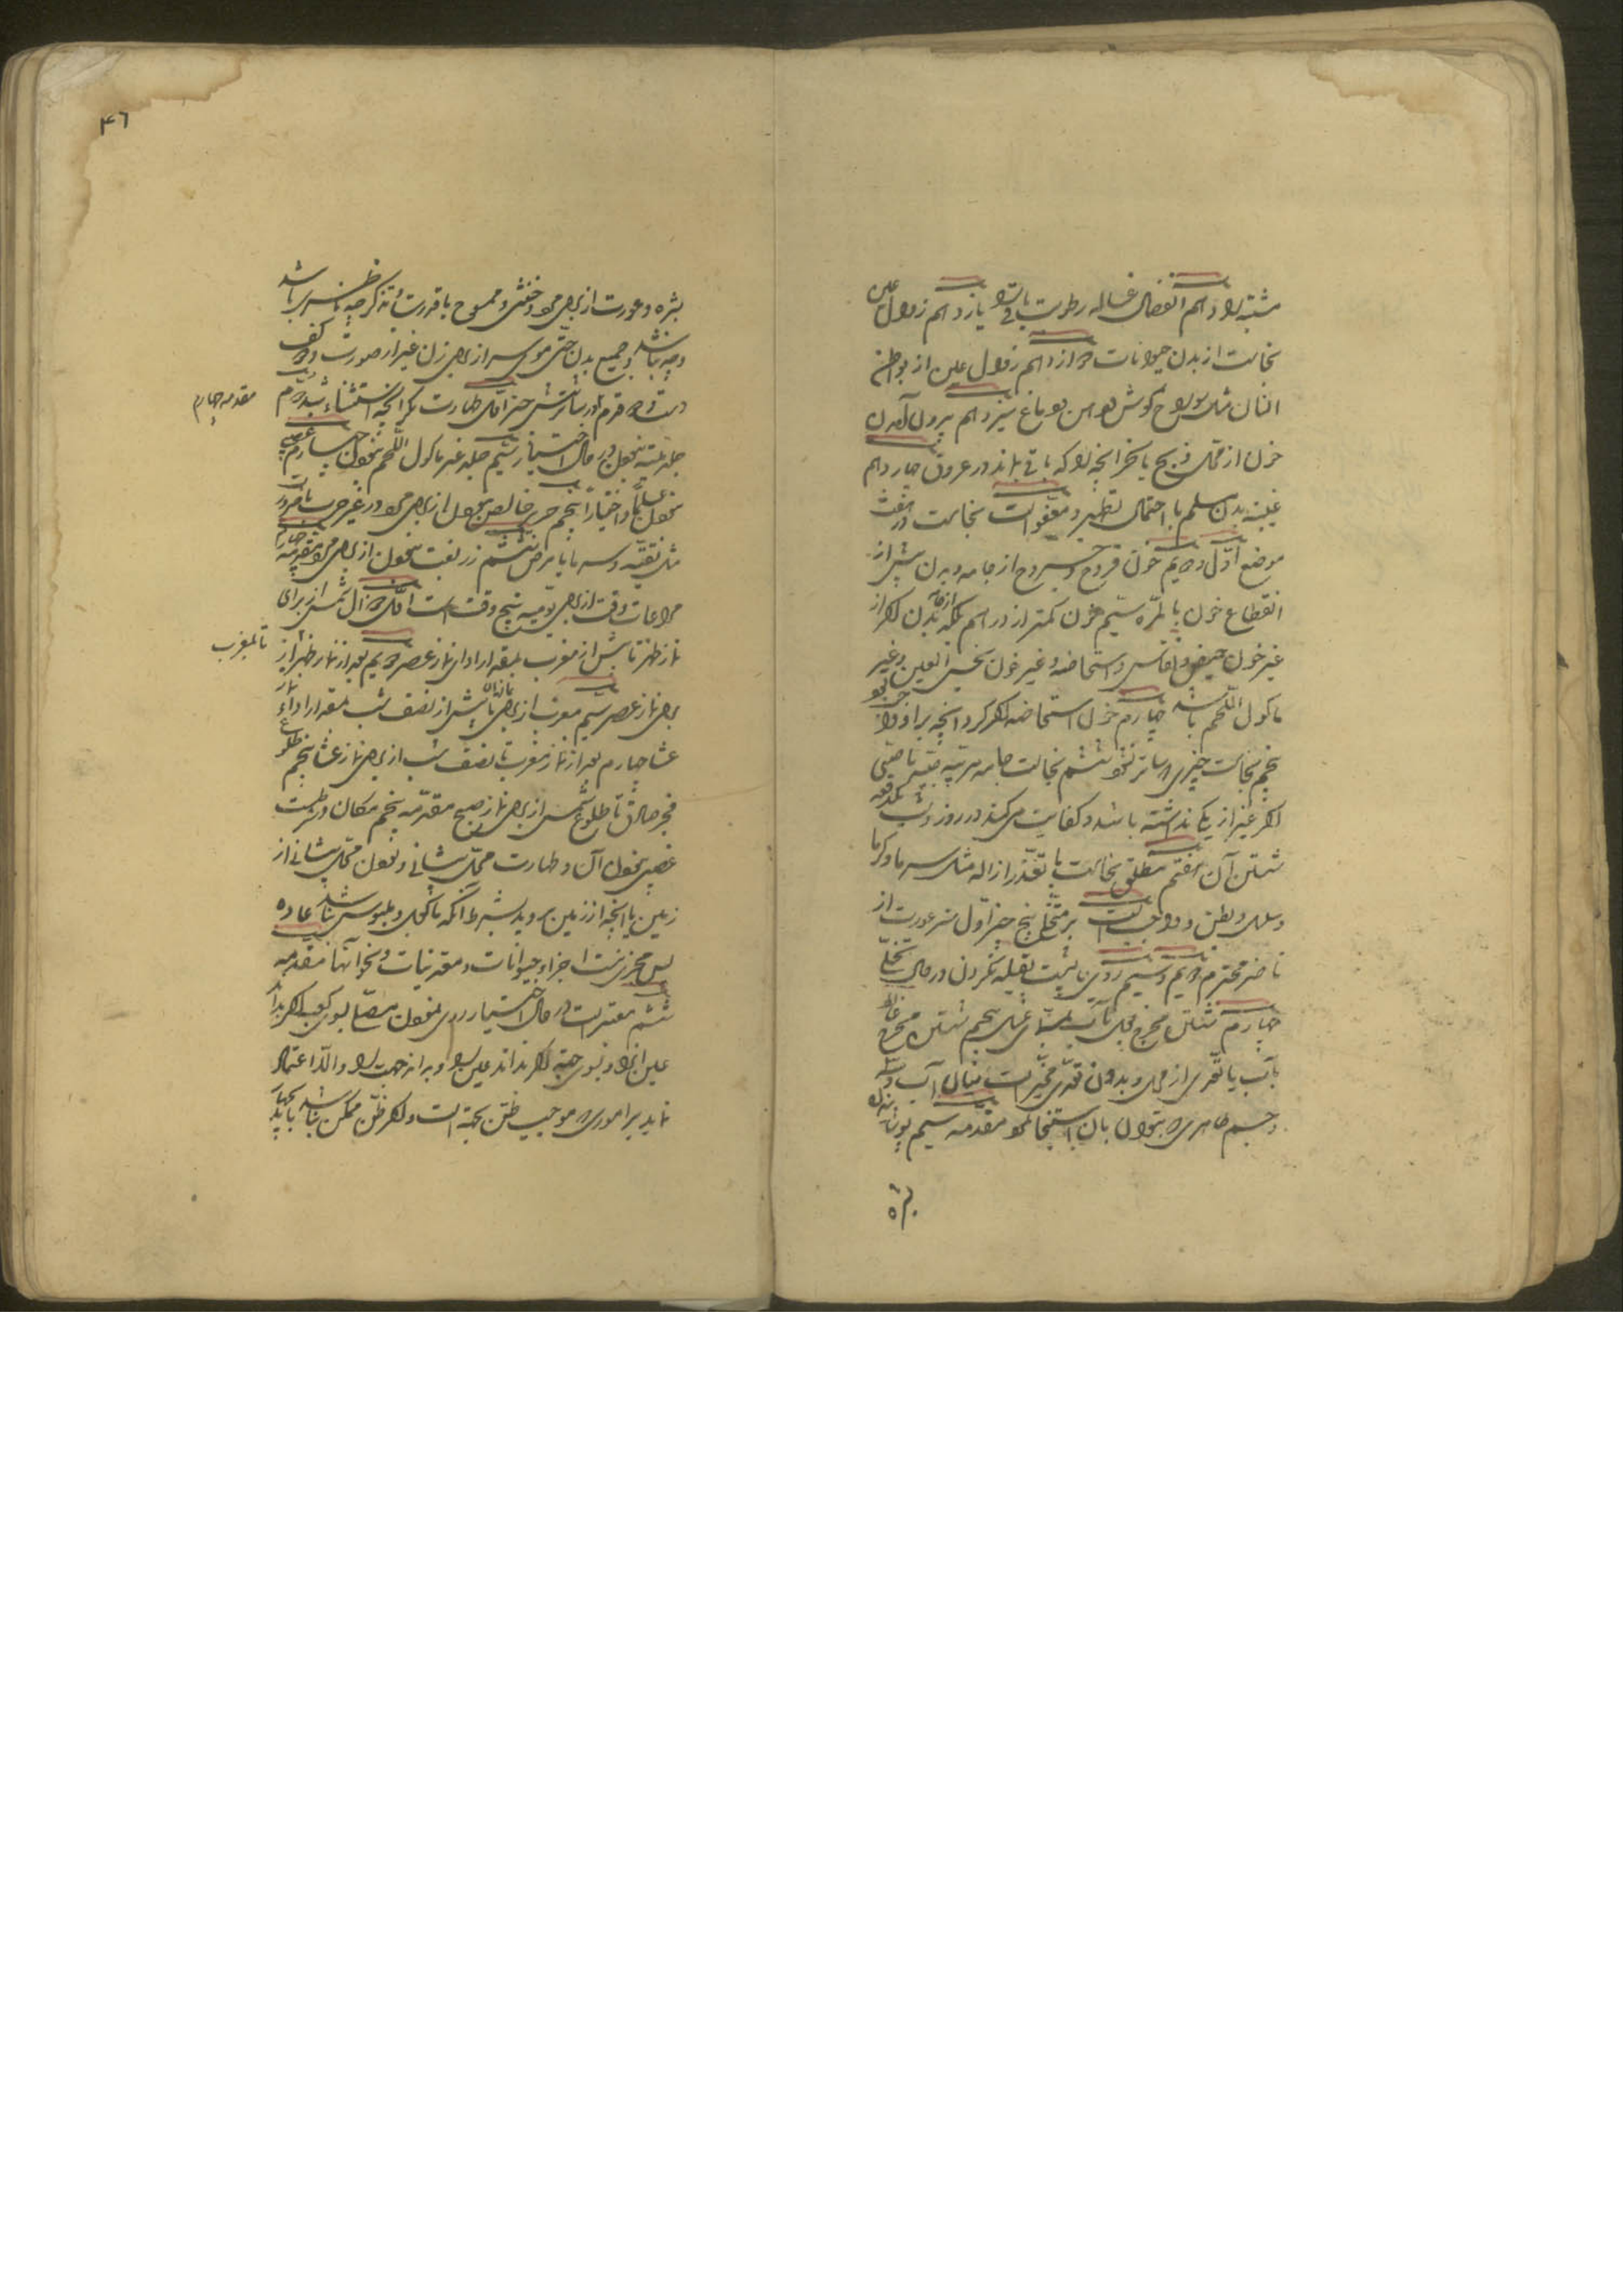 مثبته را دهم انفصال غساله رطوبت باقی را یازدهم زوال عین
نجاست از بدن حیوانات دوازدهم زوال عین از بواطن
انسان مثل سوراخ گوش و دهن و دماغ سیزدهم بیرون آمدن
خون از محل ذبح یا نحر آنچه را که باقی ماند در عروق چهاردهم
غیبت بدن مسلم با احتمال تطهیر و معفو است نجاست در هفت
موضع اول و دویم خون قروح و جروح از جامه و بدن پیش از
انقطاع خون بالمره سیم خون کمتر از درهم بغلی از جامه و بدن اگر از
غیر خون حیض و نفاس و استحاضه و غیر خون نجس العین و غیر
ماکول اللحم باشد چهارم خون استحاضه اگر کرد آنچه بر او واجب بود
پنجم نجاست چیزی که ساتر نبود ششم نجاست جامه مربیه صبی
اگر غیر از یکی نداشته باشد و کفایت می کند در روز و شب یکدفعه
شستن آن هفتم مطلق نجاست با تعذر ازاله مثل سرما و گرما
و سلس و بطن و واجب است بر متخلی پنج چیز اول ستر عورت از
ناظر محترم دویم و سیم رو و پشت بقبله نکردن در حال تخلی
چهارم شستن مخرج بول بآب پنجم شستن مخرج غائط
بآب با تعدی از محل و بدون تعدی مخیر است میان آب و سنگ
و جسم طاهری که بتوان بآن استنجا نمود مقدمه سیم پوشانیدن
بشره
۴۶
بشره و عورت از برای مرد و خنثی و ممسوح با قدرت و تذکر چه ناظری باشد
و چه نباشد و جمیع بدن حتی موی سر از برای زن غیر از صورت و دو کف
دست و دو قدم و در ساتر شش چیز اول طهارت مگر آنچه استثناء شد دویم
مقدمه چهارم
جلد میته نبودن در حال اختیار سیم جلد غیر ماکول اللحم نبودن چهارم غصبی
نبودن علما و اختیارا پنجم حریر خالص نبودن از برای مرد در غیر حرب یا ضرورت
مثل تقیه و سرما یا مرض ششم زربفت نبودن از برای مرد مقدمه چهارم
مراعات وقت از برای یومیه پنج وقت است اول زوال شمس از برای
نماز ظهر تا پیش از مغرب بمقدار ادای نماز عصر دویم بعد از نماز ظهر از
تا مغرب
برای نماز عصر سیم مغرب از برای نماز آن تا پیش از نصف شب بمقدار اداء نماز
عشا چهارم بعد از نماز مغرب تا نصف شب از برای نماز عشا پنجم طلوع
فجر صادق تا طلوع شمس از برای نماز صبح مقدمه پنجم مکان و شرطست
غصبی نبودن آن و طهارت محل پیشانی و بودن محل پیشانی از
زمین یا آنچه از زمین بروید بشرط آنکه ماکول و ملبوس نباشد عادة
پس مجزی نیست اجزاء حیوانات و معدنیات و نحو آنها مقدمه
ششم معتبر است در حال اختیار روی نمودن مصلی بسوی کعبه اگر بداند
عین آنرا و بسوی جهة اگر نداند عین را و بداند جهت را و الا اعتماد
نماید بر اموری که موجب ظن بجهة است و اگر ظن ممکن نباشد باید بچهار